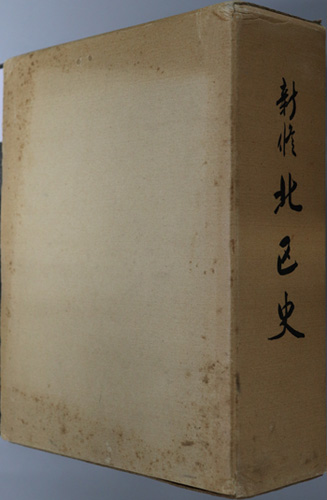 新修北区史